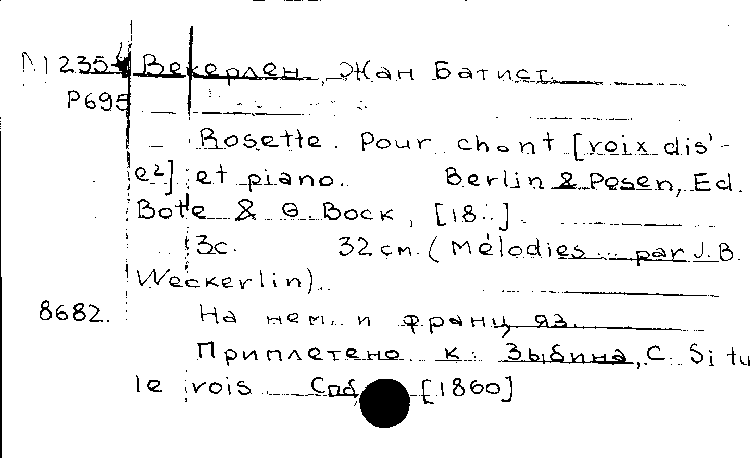 М 2354 Векерлен, Жан Батист.
P695
Rosette. Pour chant [voix dis'-
e2] et piano. Berlin & Posen, Ed.
Bote & G. Bock, [18..].
3c. 32 cm. (Mélodies... par J.B.
Weckerlin)..
8682. На нем. и франц. яз.
Приплетено к: Зыбина, С. Si tu
le vois Спб [1860]